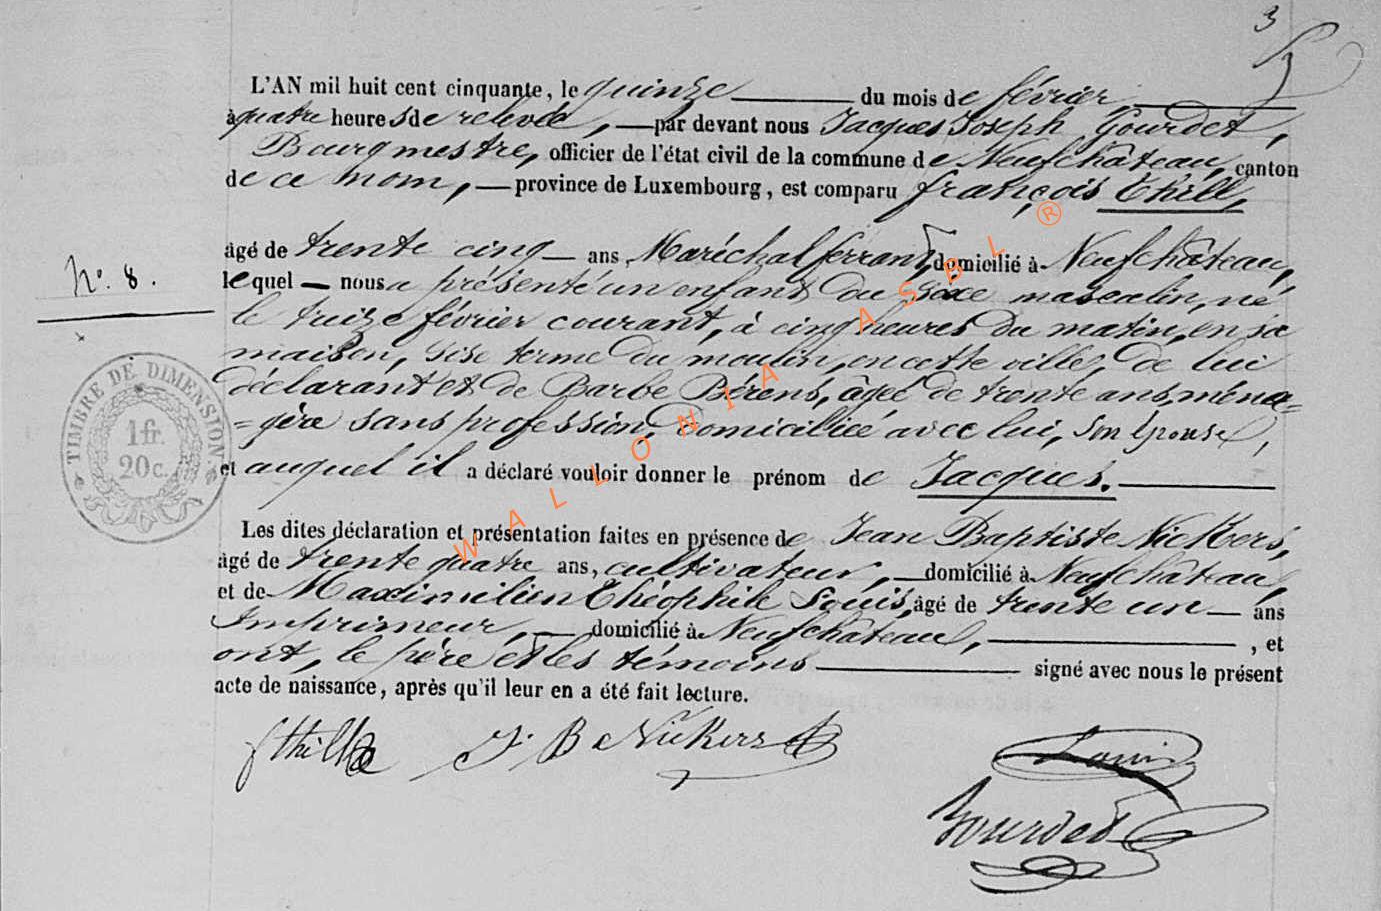 3
L'AN mil huit cent cinquante, le quinze du mois de février
à quatre heures de relevée, par devant nous Jacques Joseph Gourdet,
Bourgmestre, officier de l'état civil de la commune de Neufchâteau, canton
de ce nom, province de Luxembourg, est comparu françois Thill,
âgé de trente cinq ans, Maréchal ferrant, domicilié à Neufchâteau,
N.° 8.
lequel nous a présenté un enfant du sexe masculin, né
le treize février courant, à cinq heures du matin, en sa
maison, sise terme du moulin, en cette ville, de lui
déclarant et de Barbe Bérens, âgée de trente ans, ména=
=gère sans profession, domiciliée avec lui, son épouse,
et auquel il a déclaré vouloir donner le prénom de Jacques.
TIMBRE DE DIMENSION
1 fr.
20 c.
Les dites déclaration et présentation faites en présence de Jean Baptiste Nickers,
âgé de trente quatre ans, cultivateur, domicilié à Neufchâteau,
et de Maximilien Théophile Louis, âgé de trente un ans
Imprimeur, domicilié à Neufchâteau, , et
ont, le père et les témoins signé avec nous le présent
acte de naissance, après qu'il leur en a été fait lecture.
fthill J. B Nickers Louis
Gourdet
WALLONIA ASBL ®